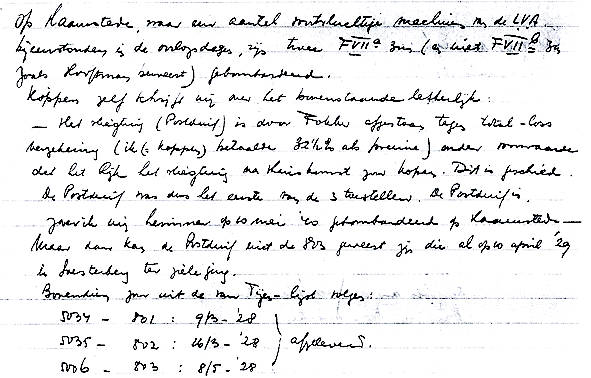 Op Haamstede, waar een aantal voortvluchtige machines van de LVA
bijeenstonden in de oorlogsdagen, zijn twee FVIIa 3m (en niet FVIIb 3m
zoals Hooftman beweert) gebombardeerd.
Koppen zelf schrijft mij over het bovenstaande letterlijk:
— Het vliegtuig (Postduif) is door Fokker afgestaan tegen total-loss
verzekering (ik (= Koppen) betaalde 32½% als premie) onder voorwaarde
dat het Rijk het vliegtuig na thuiskomst zou kopen. Dit is geschied.
De Postduif was dus het eerste van de 3 toestellen. De Postduif is,
zoals ik mij herinner op 10 mei '40 gebombardeerd op Haamstede —
Maar dan kan de Postduif niet de 803 geweest zijn die al op 10 april '29
in Soesterberg ter ziele ging.
Bovendien zou uit de van Tijen-lijst volgen:
5034 - 801 : 9/3-'28
5035 - 802 : 16/3-'28 } afgeleverd.
5006 - 803 : 8/5-'28